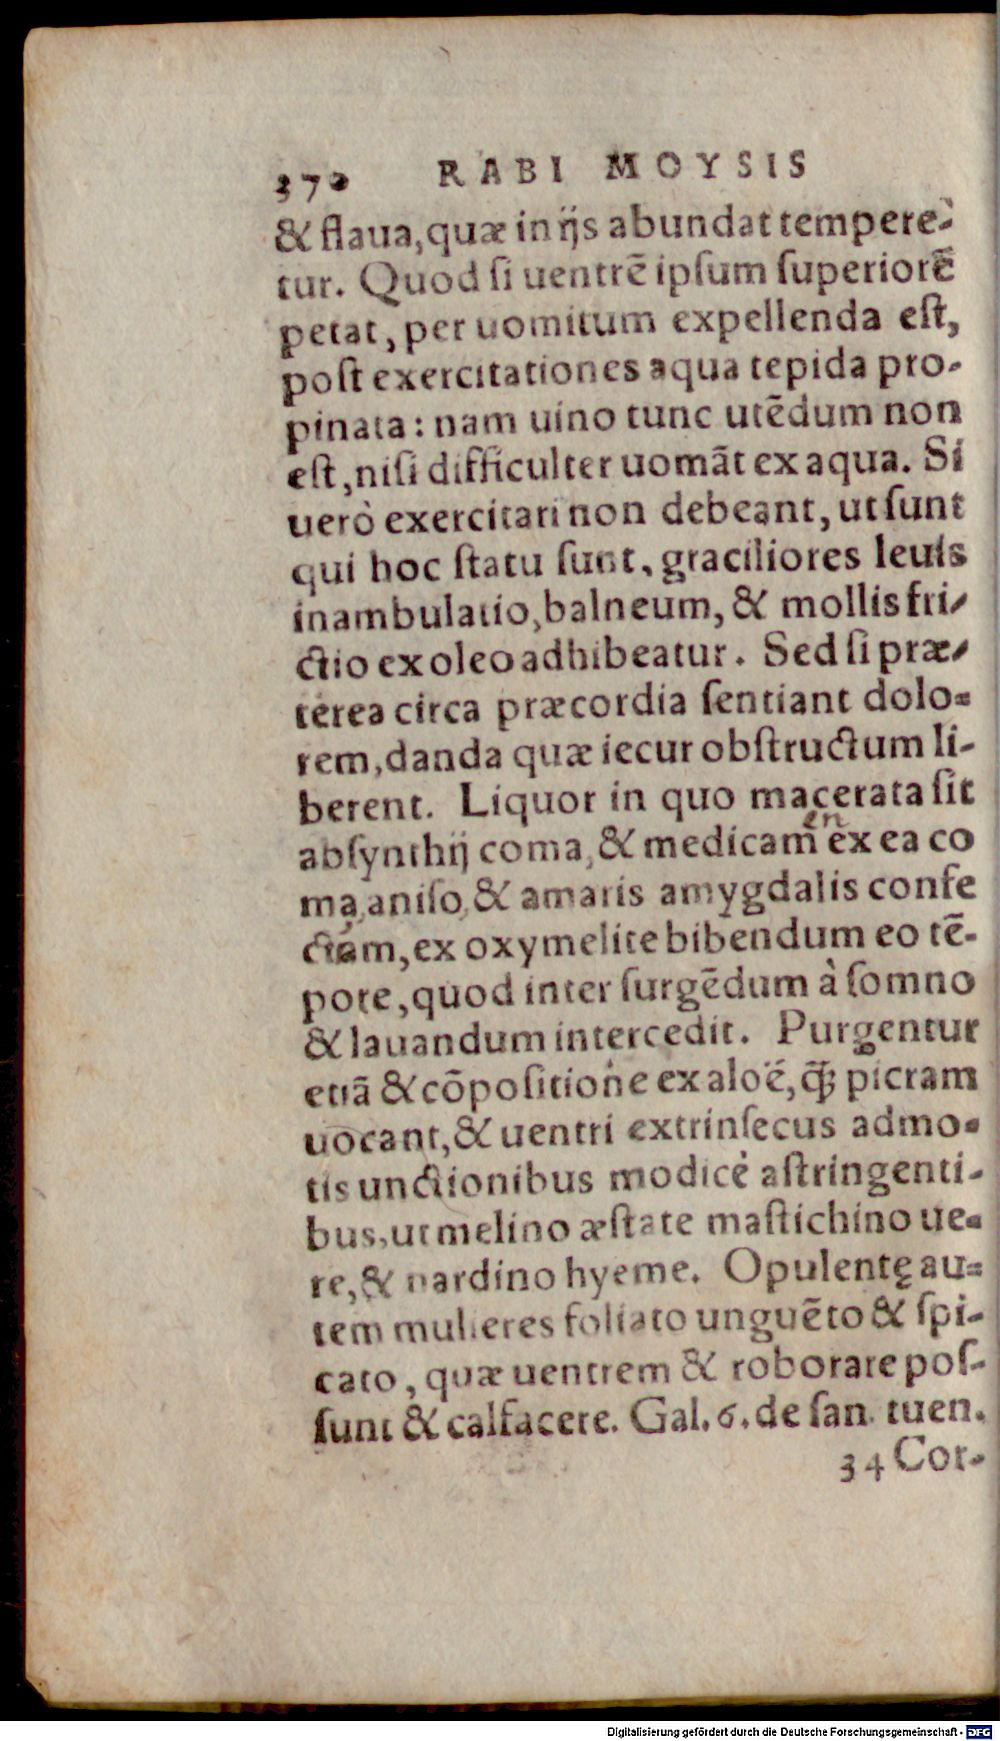 370 RABI MOYSIS
& flaua, quæ in ijs abundat tempere-
tur. Quod ſi uentrē ipſum ſuperiorē
petat, per uomitum expellenda eſt,
poſt exercitationes aqua tepida pro-
pinata: nam uino tunc utēdum non
eſt, niſi difficulter uomāt ex aqua. Si
uerò exercitari non debeant, ut ſunt
qui hoc ſtatu ſunt, graciliores leuis
inambulatio, balneum, & mollis fri-
ctio ex oleo adhibeatur. Sed ſi præ-
terea circa præcordia ſentiant dolo-
rem, danda quæ iecur obſtructum li-
berent. Liquor in quo macerata ſit
abſynthij coma, & medicam̃ en ex ea co
ma, aniſo, & amaris amygdalis confe
ctam, ex oxymelite bibendum eo tē-
pore, quod inter ſurgēdum à ſomno
& lauandum intercedit. Purgentur
etiā & cōpoſitione ex aloë, q̃ꝫ picram
uocant, & uentri extrinſecus admo-
tis unctionibus modicè aſtringenti-
bus, ut melino æſtate maſtichino ue-
re, & nardino hyeme. Opulentę au-
tem mulieres foliato unguēto & ſpi-
cato, quæ uentrem & roborare poſ-
ſunt & calfacere. Gal. 6. de ſan. tuen.
34 Cor-
Digitalisierung gefördert durch die Deutsche Forschungsgemeinschaft - DFG